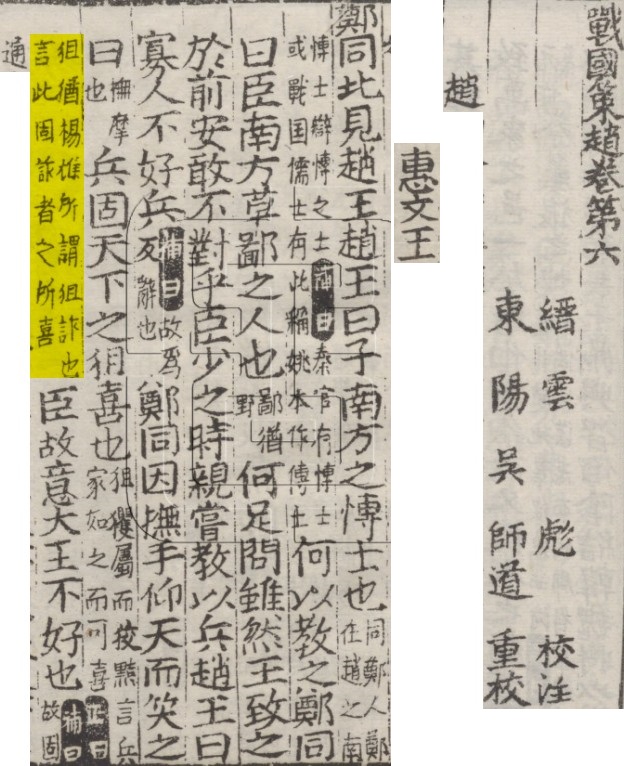 戰國策趙卷第六
縉雲　彪　校注
東陽吳師道重校
趙
惠文王
鄭同北見趙王趙王曰子南方之慱士也同鄭人鄭在趙之南
慱士辯慱之士補曰秦官有慱士或戰国儒士有此稱姚本作傳士何以教之鄭同
曰臣南方草鄙之人也鄙猶野何足問雖然王致之
於前安敢不對乎臣少之時親嘗教以兵趙王曰
寡人不好兵補曰故爲反辭也鄭同因撫手仰天而笑之
曰撫摩也兵固天下之狙喜也狙玃屬而狡黠言兵家如之而可喜正曰
狙猶楊雄所謂狙詐也言此固詐者之所喜臣故意大王不好也補曰故固
通